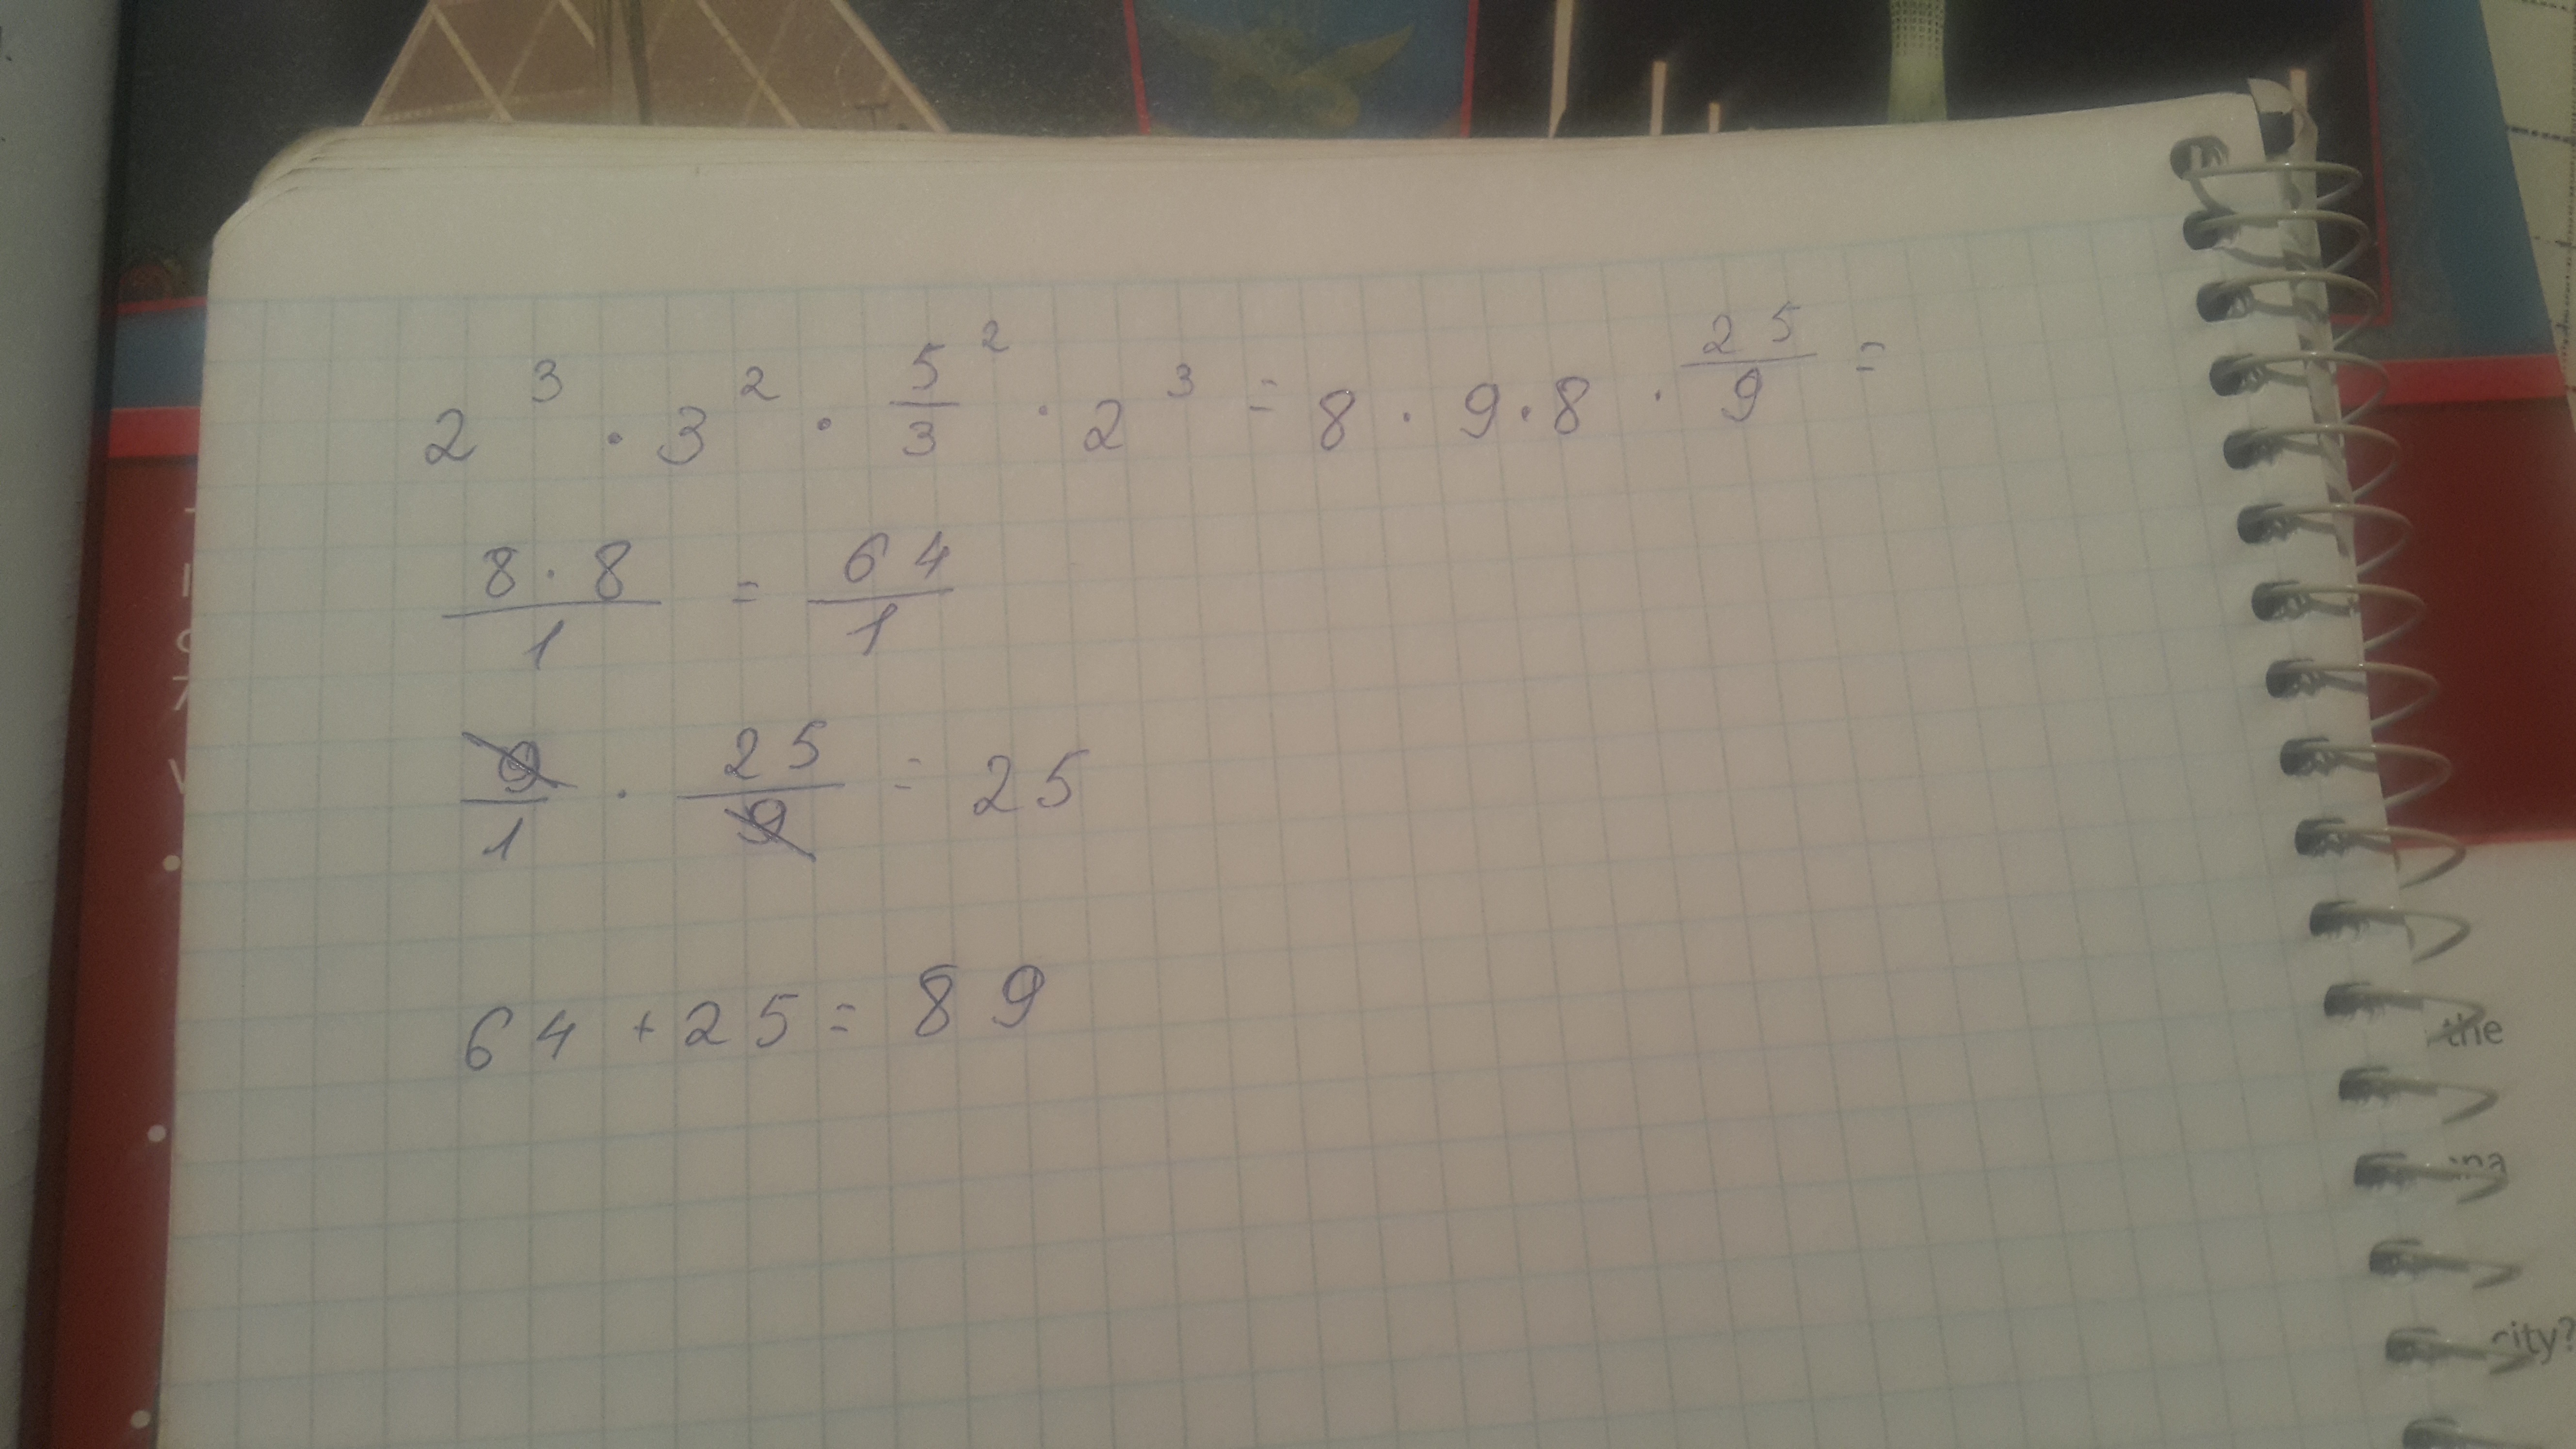 2³ · 3² · 5/3² · 2³ = 8 · 9 · 8 · 25/9 =
8 · 8/1 = 64/1
9/1 · 25/9 = 25
64 + 25 = 89
the
city?